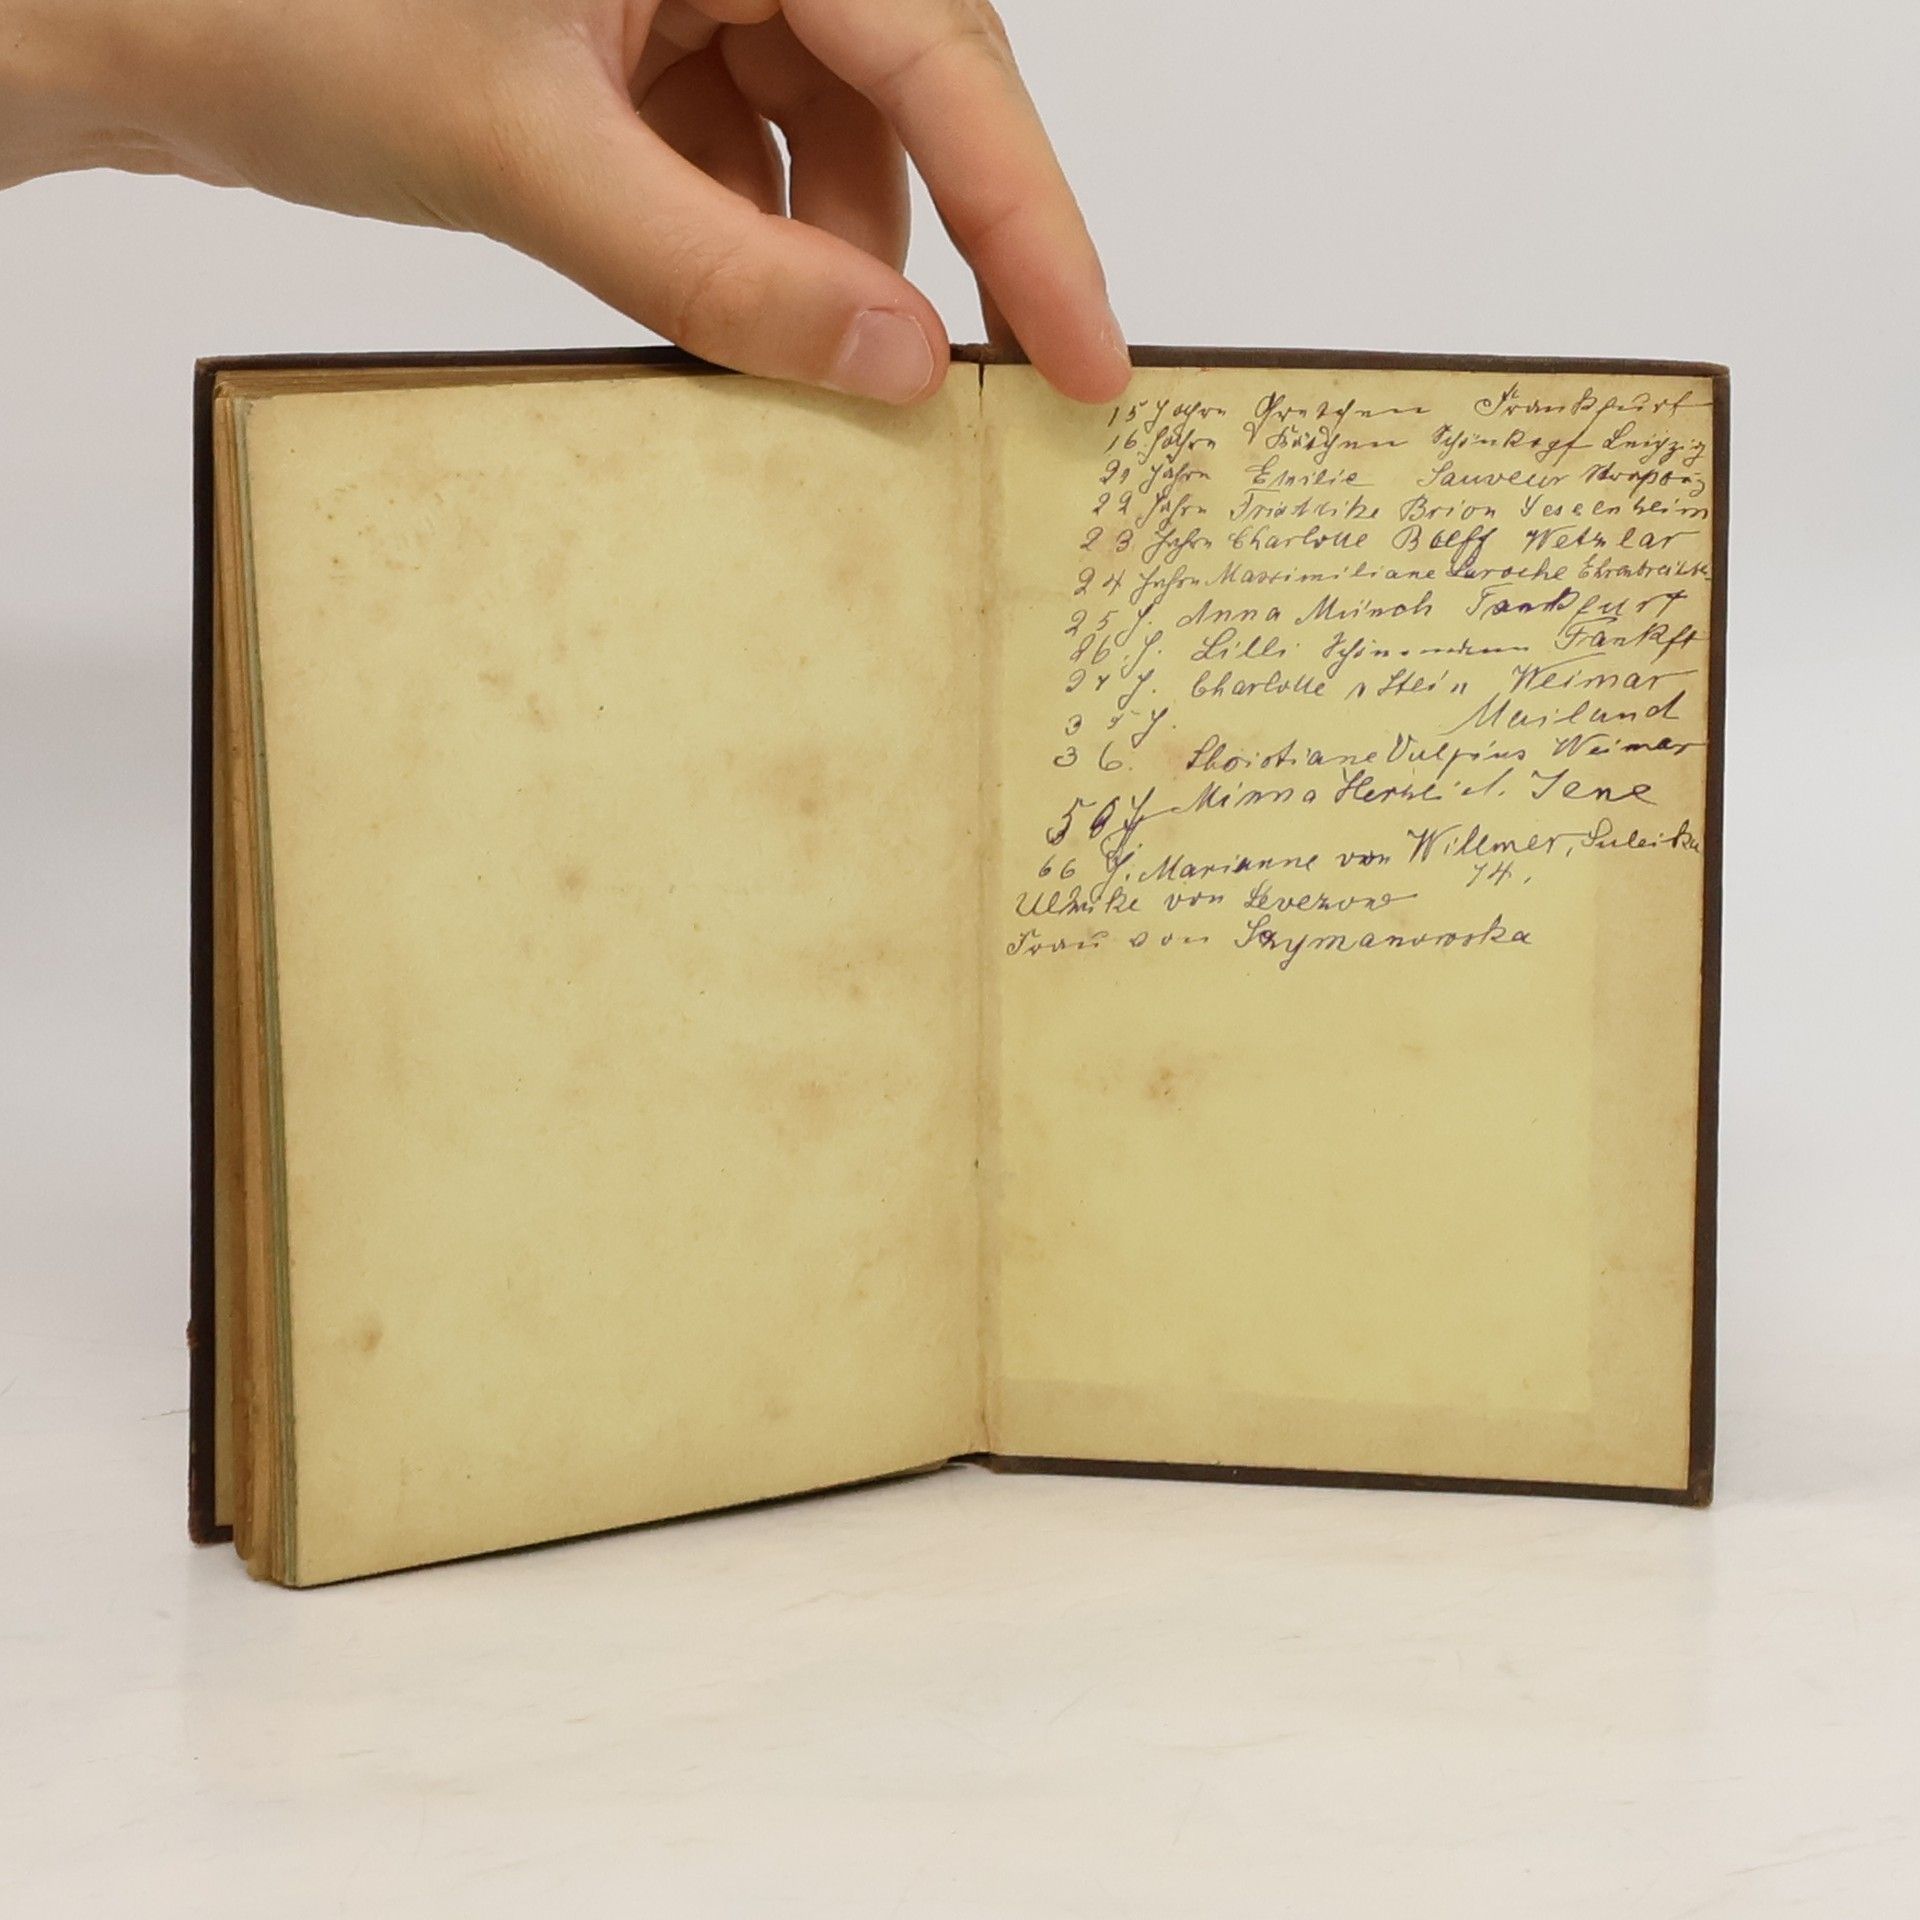 15 Jahre Gretchen Frankfurt
16 Jahre Kätchen Schönkopf Leipzig
21 Jahre Emilie Sauveur
22 Jahre Friedrike Brion Sesenheim
23 Jahre Charlotte Buff Wetzlar
24 Jahre Maximiliane Laroche
25 J. Anna Münch Frankfurt
26. J. Lilli Schönemann Frankft
27 J. Charlotte v Stein Weimar
35 J. Mailand
36. Christiane Vulpius Weimar
J Minna Herzlieb. Jene
66 J. Marianne von Willmer, Suleika
74.
Ulrike von Levezow
Frau von Szymanowska